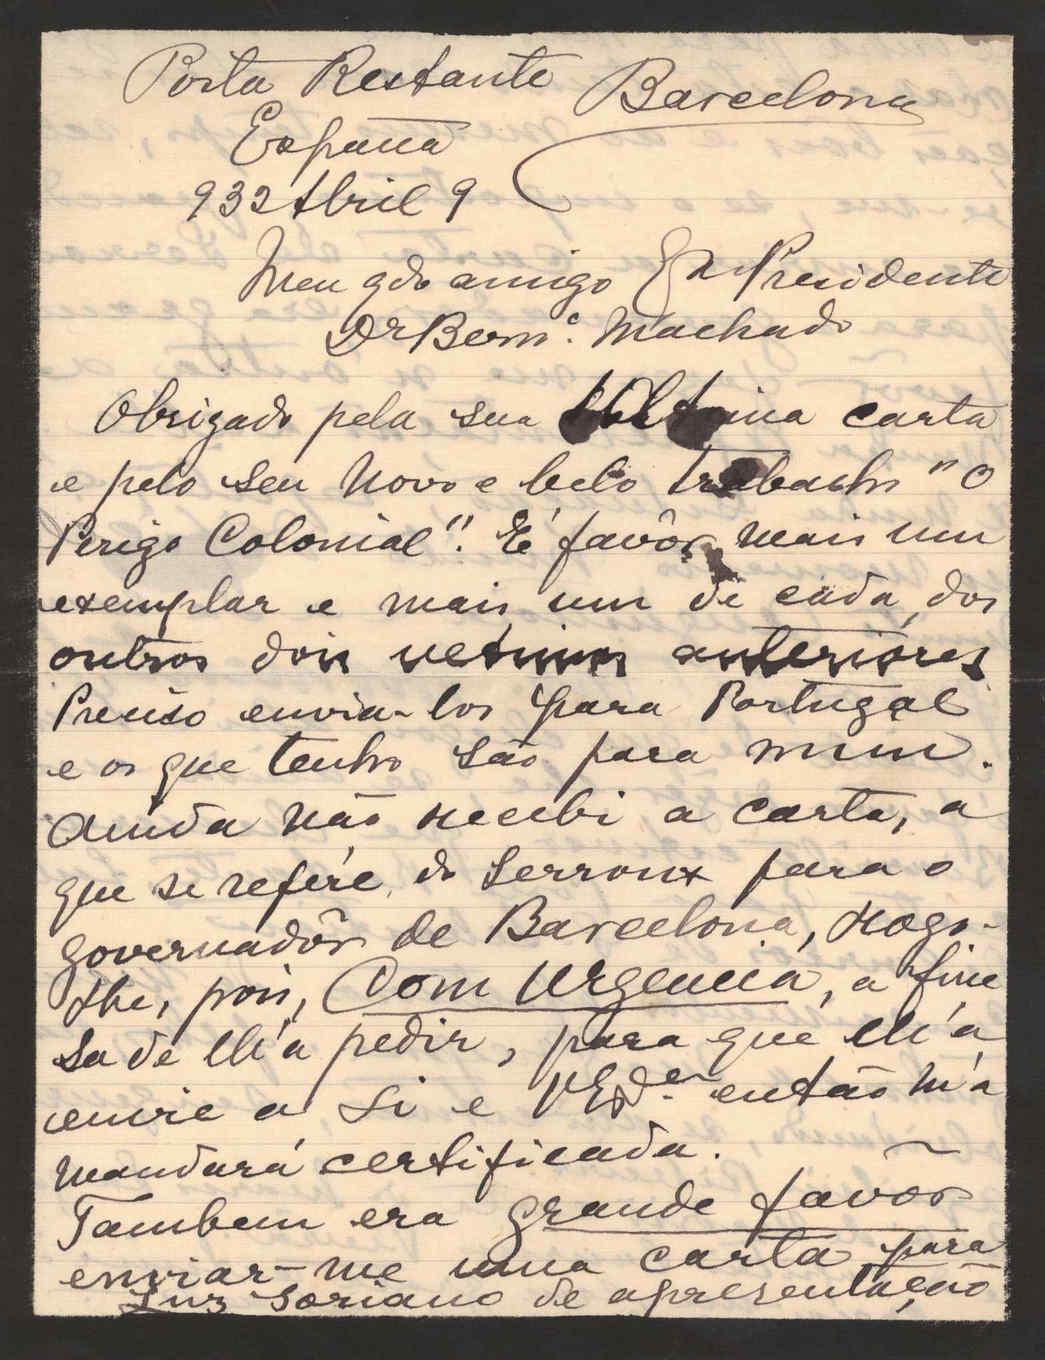 Posta Restante Barcelona
España
932 Abril 9
Meu qdo amigo Exº Presidente
Dr Bernº. Machado
Obrigado pela sua ultima carta
e pelo seu novo e belo trabalho "O
Perigo Colonial". É favôr mais um
exemplar e mais um de cada dos
outros dois ultimos anteriores
Preciso envia-los para Portugal
e os que tenho são para mim.
Ainda não recebi a carta, a
que se refére, do Lerroux para o
governadôr de Barcelona, rogo-
lhe, pois, Com Urgencia, a fine
sa de lh'a pedir, para que lh'a
envie a Si e V Exª. então m'a
mandará certificada.
Tambem era grande favôr
enviar-me uma carta para
Luz Soriano de apresentação